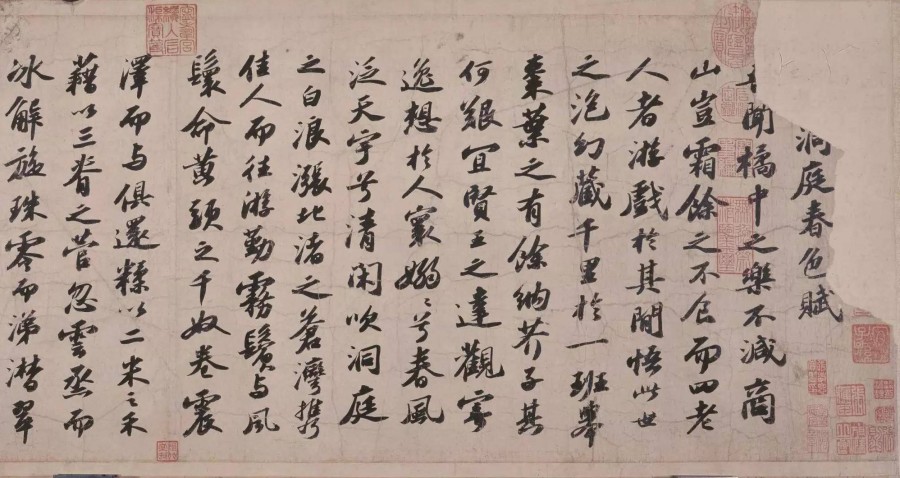 洞庭春色賦
聞橘中之樂不減商
山豈霜餘之不食而四老
人者游戲於其間悟此世
之泡幻藏千里於一班舉
棗葉之有餘納芥子其
何艱宜賢王之達觀寄
逸想於人寰嫋〻兮春風
泛天宇兮清閑吹洞庭
之白浪漲北渚之蒼灣攜
佳人而往游勤霧鬢與風
鬟命黃頭之千奴卷震
澤而與俱還糅以二米之禾
藉以三脊之菅忽雲烝而
冰解旋珠零而涕潸翠